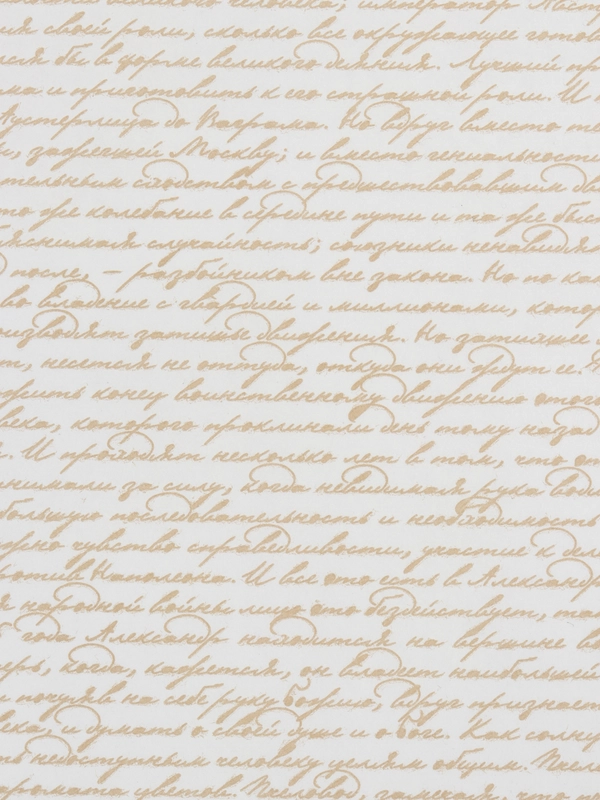 великого человека; император Австр
ия своей роли, сколько все окружающее готов
лся бы в форме великого деяния. Лучший пр
ма и приготовить к его страшной роли. И п
Аустерлица до Ваграма. Но вдруг вместо те
и, зажегшей Москву; и вместо гениальности
тельным сходством с предшествовавшим дв
то же колебание в середине пути и та же быс
яснимая случайность; союзники ненавидят
после, – разбойником вне закона. Но по как
во владение с гвардией и миллионами, котор
оизводят затишье движения. Но затихшее
т, несется не оттуда, откуда они ждут ее.
жить конец воинственному движению этого
века, которого проклинали день тому назад
. И проходят несколько лет в том, что эт
нимали за силу, когда невидимая рука води
большую последовательность и необходимость
ужно чувство справедливости, участие к дел
ротив Наполеона. И все это есть в Александр
й народной войны лицо это бездействует, та
5 года Александр находится на вершине во
ерь, когда, кажется, он владеет наибольшей
и почуяв на себе руку божию, вдруг признает
века, и думать о своей душе и о боге. Как солнц
ть недоступным человеку целям общим. Пчел
аромата цветов. Пчеловод, замечая, что п